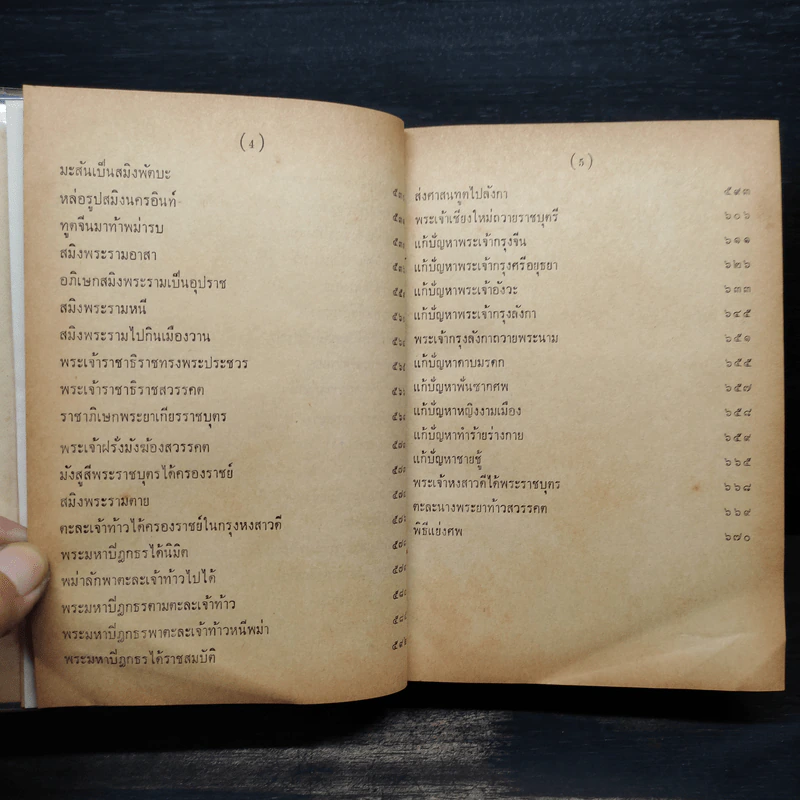 (4)
มะสันเป็นสมิงพัตบะ
หล่อรูปสมิงนครอินท์
ทูตจีนมาท้าพม่ารบ
สมิงพระรามอาสา
อภิเษกสมิงพระรามเป็นอุปราช
สมิงพระรามหนี
สมิงพระรามไปกินเมืองวาน
พระเจ้าราชาธิราชทรงพระประชวร
พระเจ้าราชาธิราชสวรรคต
ราชาภิเษกพระยาเกียรราชบุตร
พระเจ้าฝรั่งมังฆ้องสวรรคต
มังสูสีพระราชบุตรได้ครองราชย์
สมิงพระรามตาย
ตะละเจ้าท้าวได้ครองราชย์ในกรุงหงสาวดี
พระมหาปีฎกธรได้นิมิต
พม่าลักพาตะละเจ้าท้าวไปได้
พระมหาปีฎกธรตามตะละเจ้าท้าว
พระมหาปีฎกธรพาตะละเจ้าท้าวหนีพม่า
พระมหาปีฎกธรได้ราชสมบัติ
(5)
ส่งศาสนทูตไปลังกา ๕๙๓
พระเจ้าเชียงใหม่ถวายราชบุตรี ๖๐๖
แก้ปัญหาพระเจ้ากรุงจีน ๖๑๑
แก้ปัญหาพระเจ้ากรุงศรีอยุธยา ๖๒๖
แก้ปัญหาพระเจ้าอังวะ ๖๓๓
แก้ปัญหาพระเจ้ากรุงลังกา ๖๔๕
พระเจ้ากรุงลังกาถวายพระนาม ๖๕๑
แก้ปัญหาดาบมรดก ๖๕๕
แก้ปัญหาฟันซากศพ ๖๕๗
แก้ปัญหาหญิงงามเมือง ๖๕๘
แก้ปัญหาทำร้ายร่างกาย ๖๕๙
แก้ปัญหาชายชู้ ๖๖๕
พระเจ้าหงสาวดีได้พระราชบุตร ๖๖๘
ตะละนางพระยาท้าวสวรรคต ๖๖๙
พิธีแย่งศพ ๖๗๐